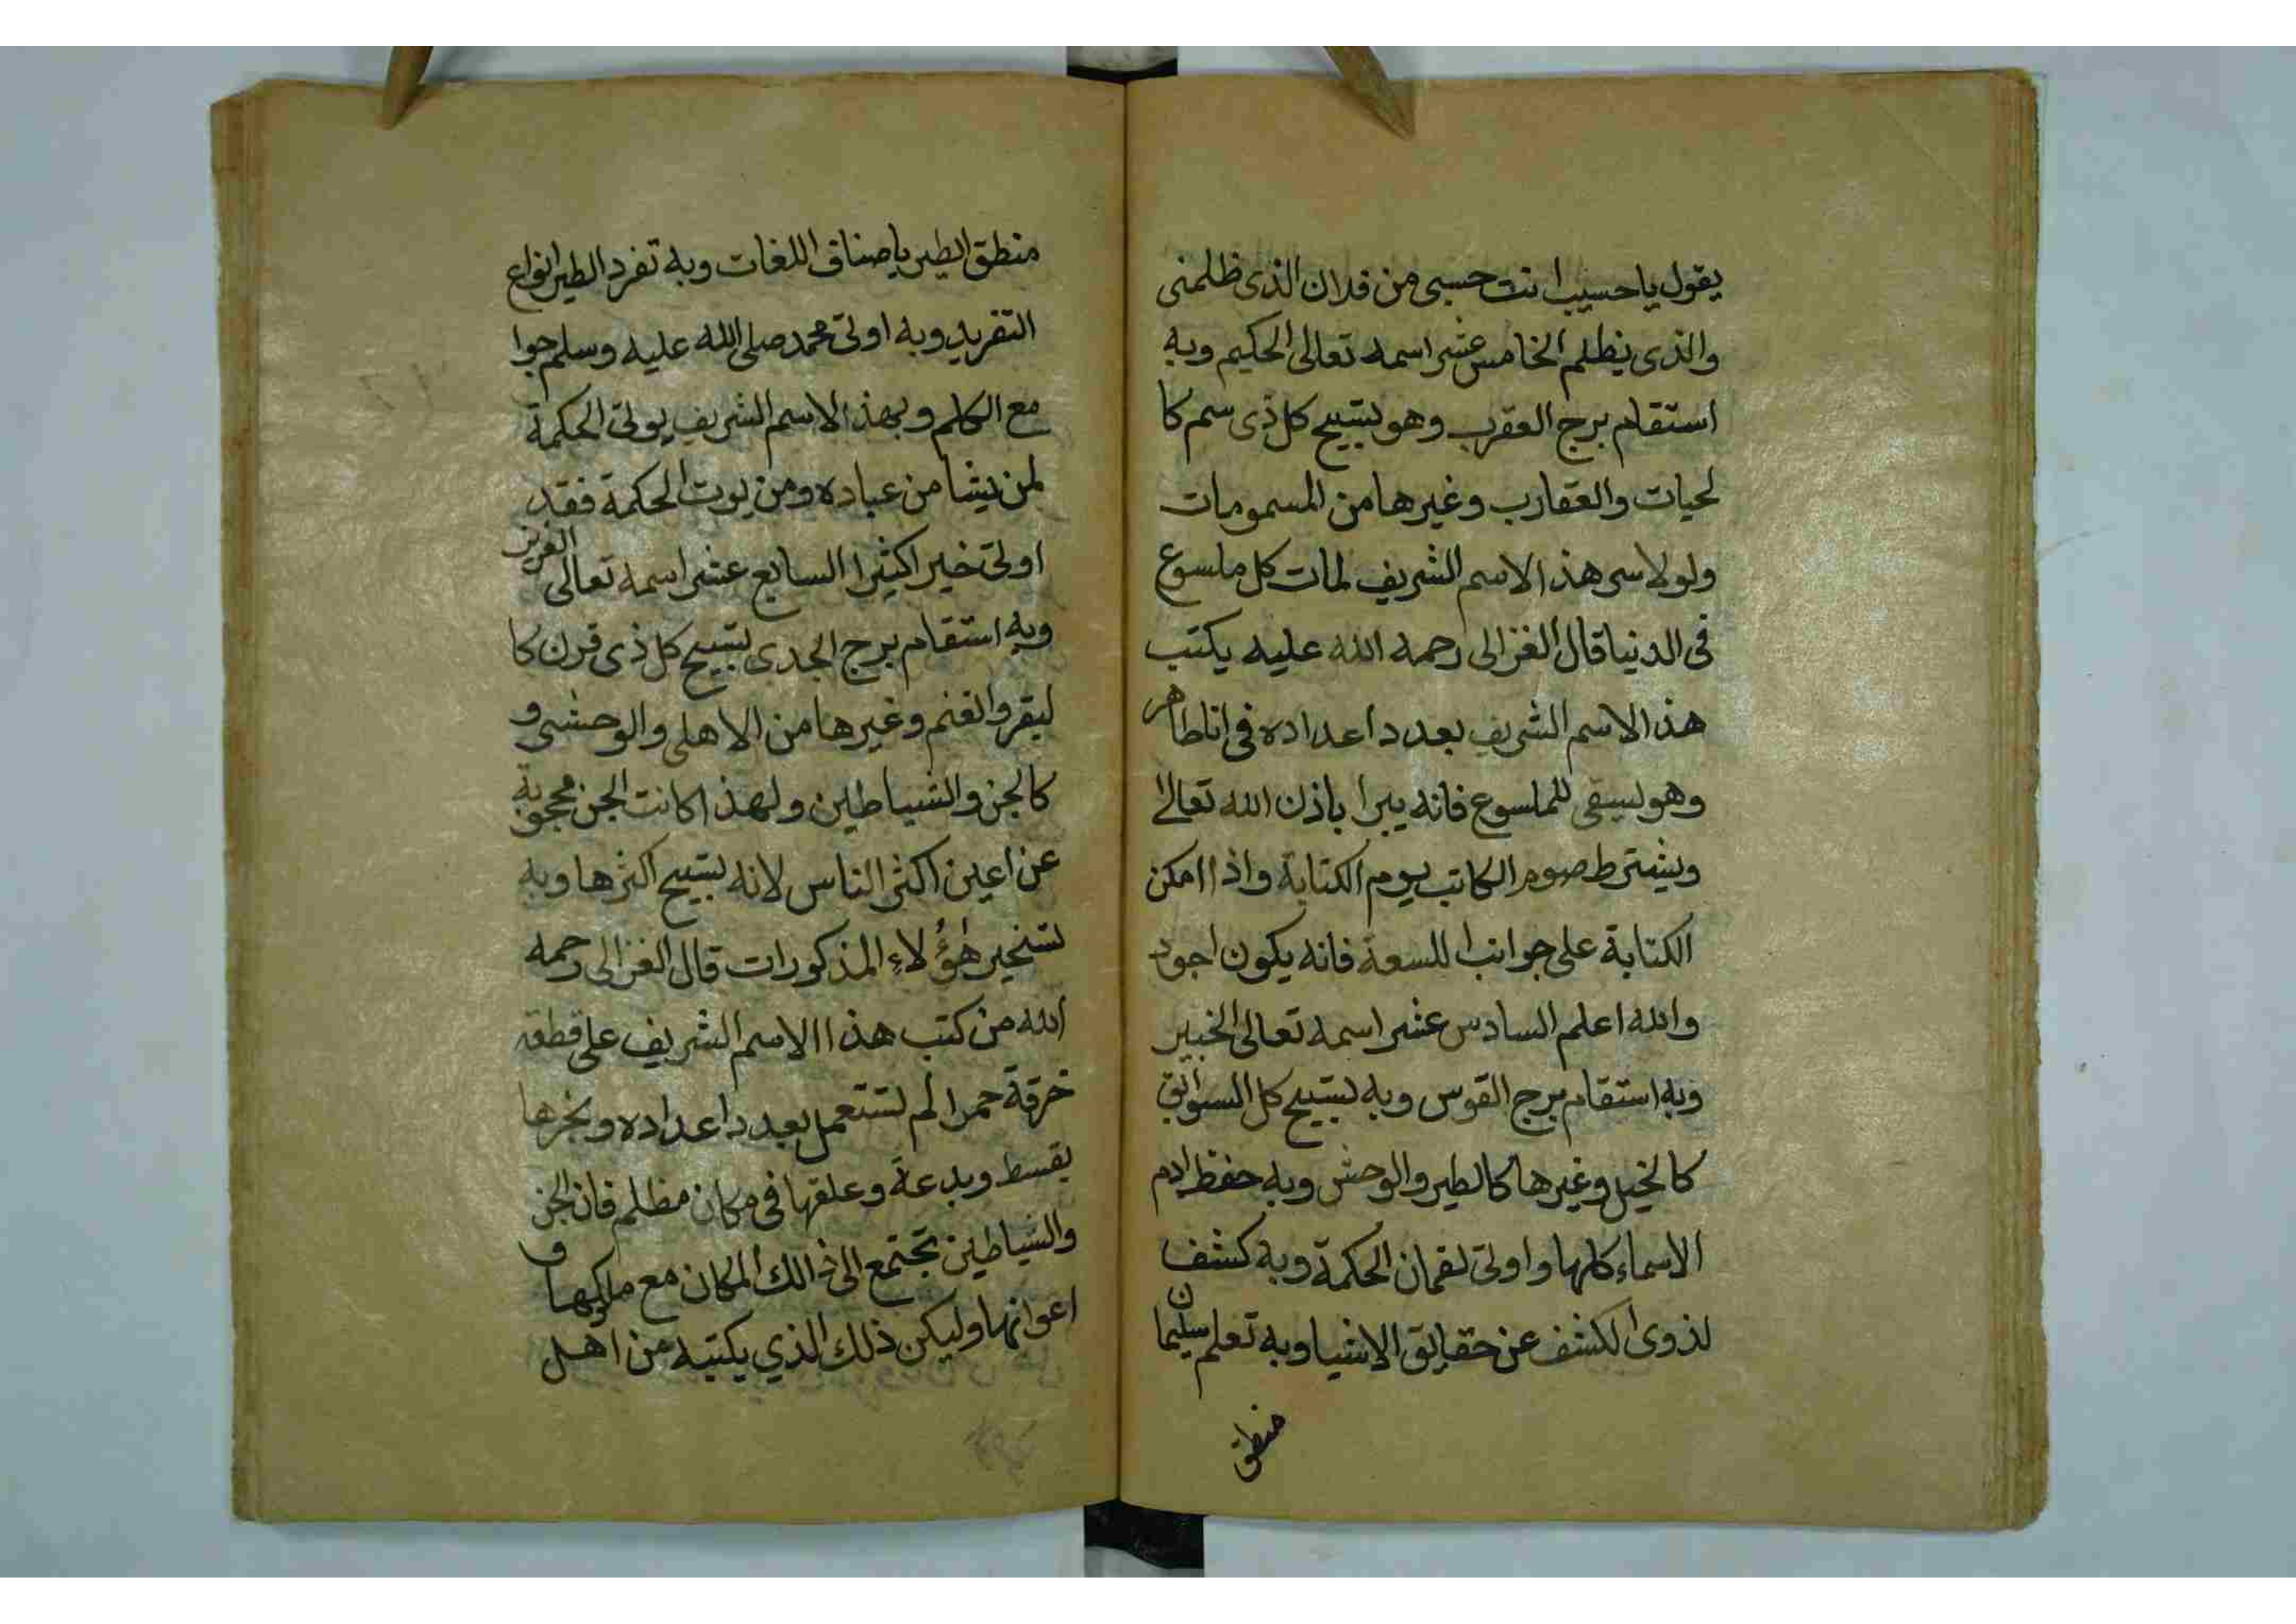 يقول ياحسيب انت حسبي من فلان الذى ظلمنى
والذى يظلم الخامس عشر اسمه تعالى الحكيم وبه
استقام برج العقرب وهو لتسبيح كل ذى سم كا
لحيات والعقارب وغيرها من المسمومات
ولولا سر هذا الاسم الشريف لمات كل ملسوع
فى الدنيا قال الغزالى رحمه الله عليه يكتب
هذ الاسم الشريف بعدد اعداده فى انا طاهر
وهو ليسقى للملسوع فانه يبرا باذن الله تعالى
ويشترط صوم الكاتب يوم الكتابة واذا امكن
الكتابة على جوانب اللسعة فانه يكون اجود
والله اعلم السادس عشر اسمه تعالى الخبير
وبه استقام برج القوس وبه لتسبيح كل السوابق
كالخيل وغيرها كالطير والوحش وبه حفظ ادم
الاسماء كلها واوتى لقمان الحكمة وبه كشف
لذوى الكشف عن حقايق الاشيا وبه تعلم سليمان
منطق
منطق الطير باصناف اللغات وبه تفرد الطير انواع
التفريد وبه اوتى محمد صلى الله عليه وسلم جوا
مع الكلم وبهذ الاسم الشريف يوتى الحكمة
لمن يشا من عباده ومن يوت الحكمة فقد
اوتى خيرا كثيرا السابع عشر اسمه تعالى العزيز
وبه استقام برج الجدى لتسبيح كل ذى قرن كا
لبقر والغنم وغيرها من الاهلى والوحشى و
كالجن والشياطين ولهذا كانت الجن محجوبة
عن اعين اكثر الناس لانه لتسبيح اكثرها وبه
تسخير هؤلاء المذكورات قال الغزالى رحمه
الله من كتب هذا الاسم الشريف على قطعة
خرقة حمرا لم تستعمل بعدد اعداده وبخرها
بقسط وبدعة وعلقها فى مكان مظلم فان الجن
والشياطين تجتمع الى ذالك المكان مع ملكها و
اعوانها وليكن ذلك الذي يكتبه من اهل